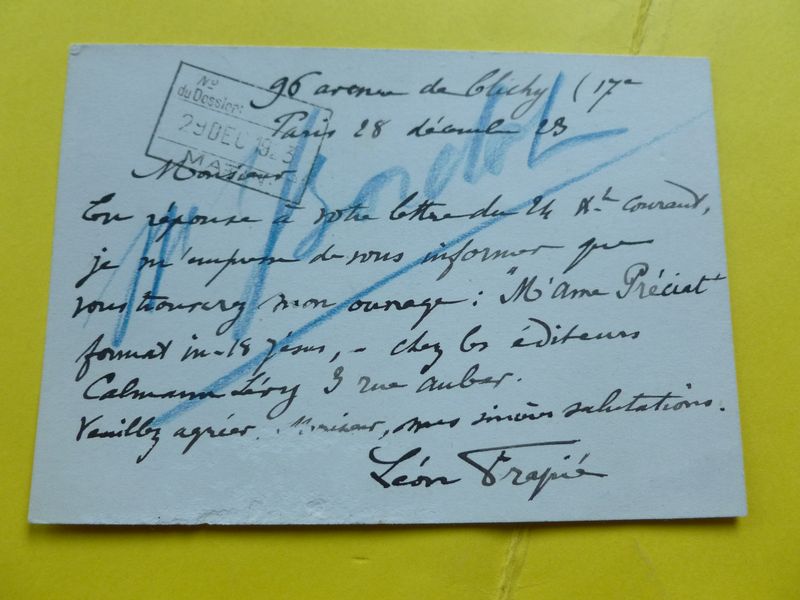 96 avenue de Clichy (17e
Paris 28 décembre 23
No
du Dossier:
29 DEC 1923
MATIN
Monsieur
En réponse à votre lettre du 24 Xbre courant,
je m'empresse de vous informer que
vous trouverez mon ouvrage : "M'ame Préciat"
format in-18 jésus, - chez les éditeurs
Calmann Lévy 3 rue auber.
Veuillez agréer Monsieur, mes sincères salutations.
Léon Frapié